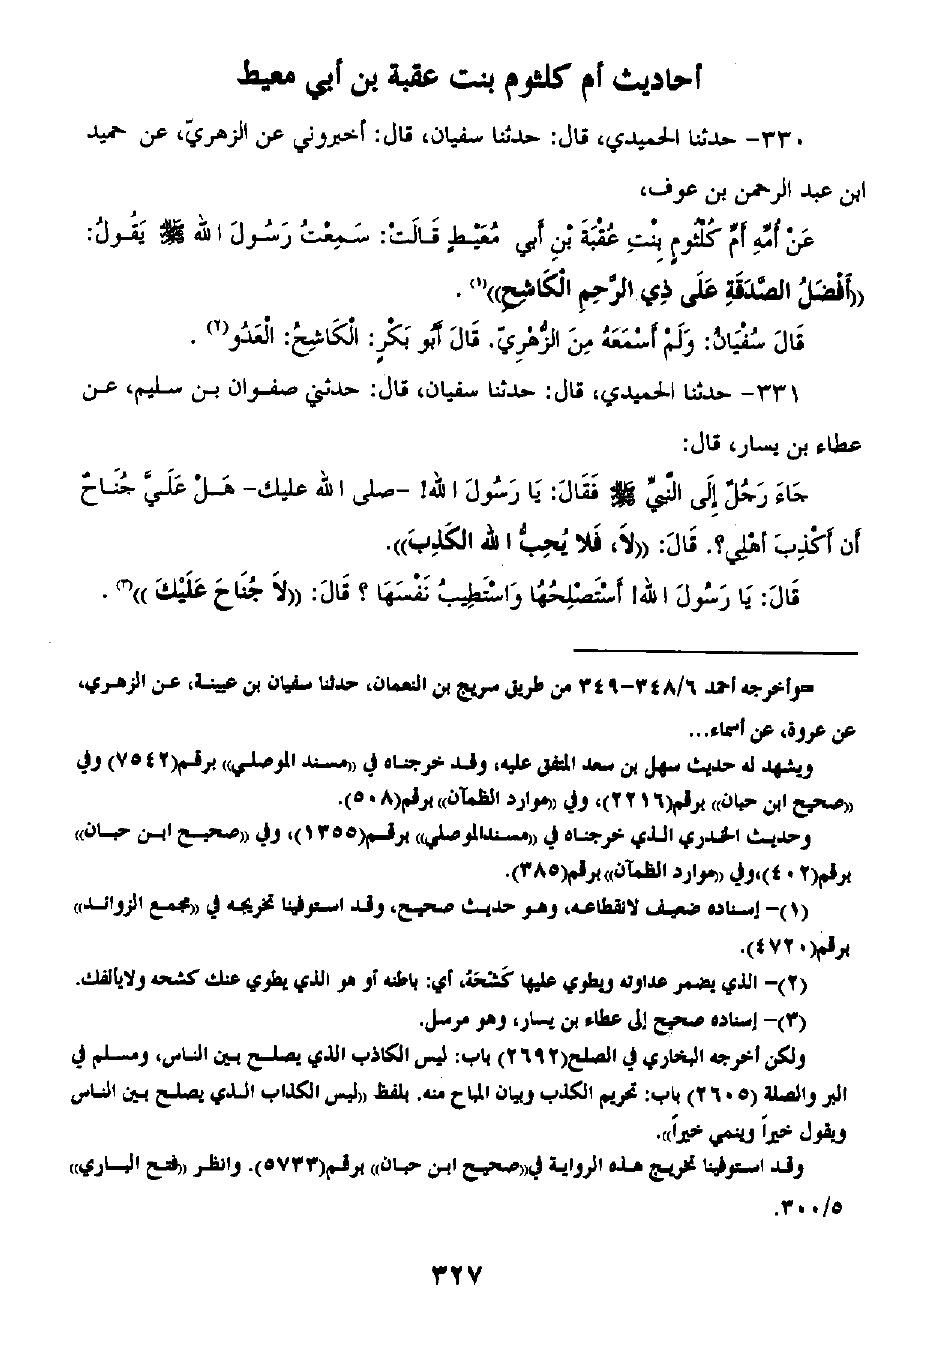 أحاديث أم كلثوم بنت عقبة بن أبي معيط
٣٣٠- حدثنا الحميدي، قال: حدثنا سفيان، قال: أخبروني عن الزهريّ، عن حميد
ابن عبد الرحمن بن عوف،
عَنْ أُمِّهِ أُمِّ كُلْثُومٍ بِنْتِ عُقْبَةَ بْنِ أَبِي مُعَيْطٍ قَالَتْ: سَمِعْتُ رَسُولَ الله ﷺ يَقُولُ:
((أَفْضَلُ الصَّدَقَةِ عَلَى ذِي الرَّحِمِ الْكَاشِحِ))(١).
قَالَ سُفْيَانُ: وَلَمْ أَسْمَعْهُ مِنَ الزُّهْرِيِّ. قَالَ أَبُو بَكْرٍ: الْكَاشِحُ: الْعَدُو(٢).
٣٣١- حدثنا الحميدي، قال: حدثنا سفيان، قال: حدثني صفوان بن سليم، عن
عطاء بن يسار، قال:
جَاءَ رَجُلٌ إِلَى النَّبِيِّ ﷺ فَقَالَ: يَا رَسُولَ الله! -صلى الله عليك- هَلْ عَلَيَّ جُنَاحٌ
أن أَكْذِبَ أَهْلِي؟. قَالَ: ((لاَ، فَلا يُحِبُّ الله الكَذِبَ)).
قَالَ: يَا رَسُولَ الله! أَسْتَصْلِحُهَا وَاسْتَطِيبُ نَفْسَهَا ؟ قَالَ: ((لاَ جُنَاحَ عَلَيْكَ ))(٣).
=وأخرجه أحمد ٣٤٨/٦-٣٤٩ من طريق سريج بن النعمان، حدثنا سفيان بن عيينة، عن الزهري،
عن عروة، عن أسماء...
ويشهد له حديث سهل بن سعد المتفق عليه، وقد خرجناه في ((مسند الموصلي)) برقم(٧٥٤٢) وفي
((صحيح ابن حبان)) برقم(٢٢١٦)، وفي ((موارد الظمآن)) برقم(٥٠٨).
وحديث الخدري الذي خرجناه في ((مسندالموصلي)) برقم(١٣٥٥)، وفي ((صحيح ابن حبان))
برقم(٤٠٢)،وفي ((موارد الظمآن))برقم(٣٨٥).
(١)- إسناده ضعيف لانقطاعه، وهو حديث صحيح، وقد استوفينا تخريجه في ((مجمع الزوائد))
برقم(٤٧٢٠).
(٢)- الذي يضمر عداوته ويطوي عليها كَشْحَهُ، أي: باطنه أو هو الذي يطوي عنك كشحه ولايألفك.
(٣)- إسناده صحيح إلى عطاء بن يسار، وهو مرسل.
ولكن أخرجه البخاري في الصلح(٢٦٩٢) باب: ليس الكاذب الذي يصلح بين الناس، ومسلم في
البر والصلة (٢٦٠٥) باب: تحريم الكذب وبيان المباح منه. بلفظ ((ليس الكذاب الذي يصلح بين الناس
ويقول خيراً وينمي خيراً)).
وقد استوفينا تخريج هذه الرواية في((صحيح ابن حبان)) برقم(٥٧٣٣). وانظر ((فتح الباري))
٣٠٠/٥.
٣٢٧